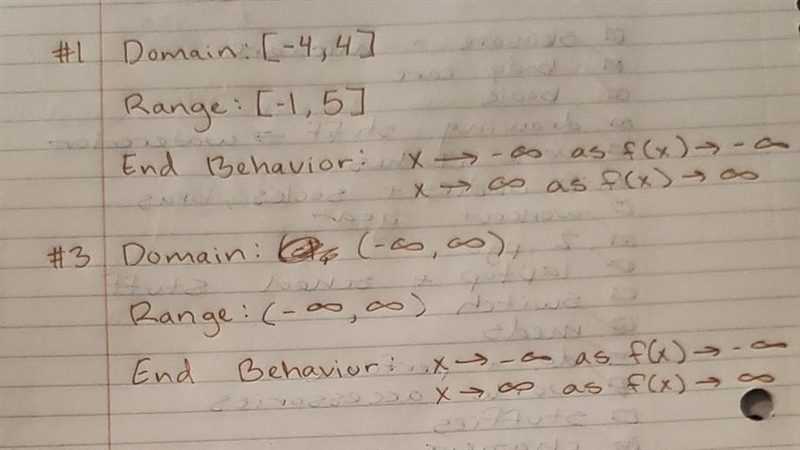 #1 Domain: [-4, 4]
Range: [-1, 5]
End Behavior: x → -∞ as f(x) → -∞
x → ∞ as f(x) → ∞
#3 Domain: (-∞, ∞)
Range: (-∞, ∞)
End Behavior: x → -∞ as f(x) → -∞
x → ∞ as f(x) → ∞